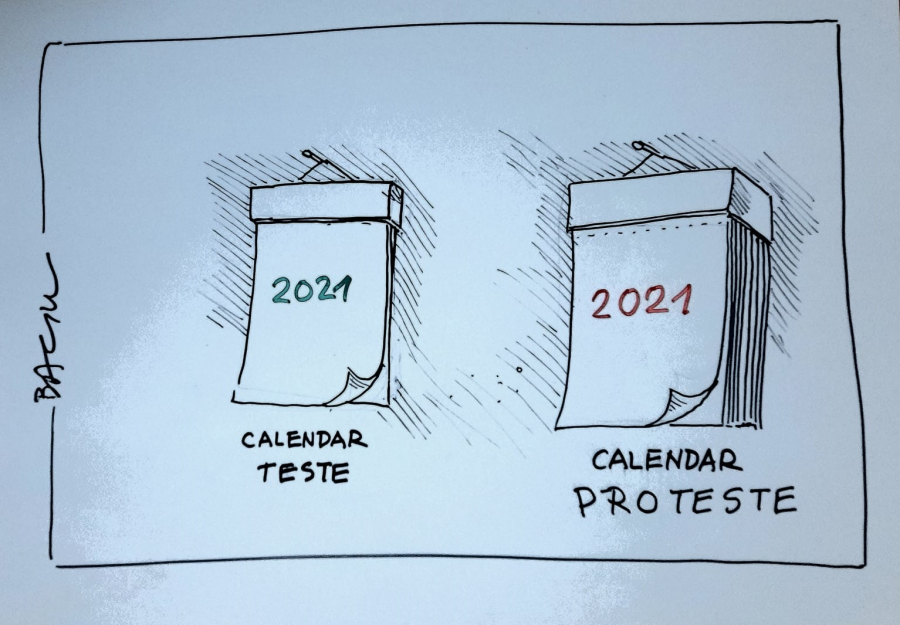 BACIU
2021
CALENDAR
TESTE
2021
CALENDAR
PROTESTE